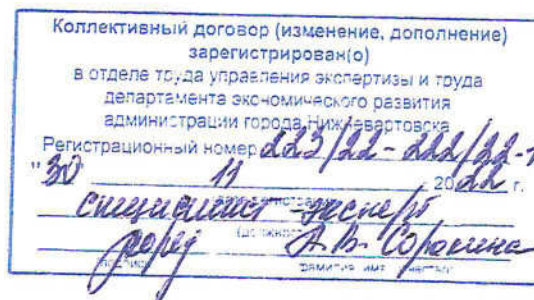 Коллективный договор (изменение, дополнение)
зарегистрирован(о)
в отделе труда управления экспертизы и труда
департамента экономического развития
администрации города Нижневартовска
Регистрационный номер 223/22-222/22-
"30 11 2022 г.
специалист-эксперт
(должность)
А.В. Сорокина
подпись фамилия, имя, отчество